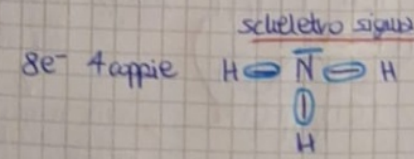 scheletro sigma
8e⁻ 4 coppie H N H
H